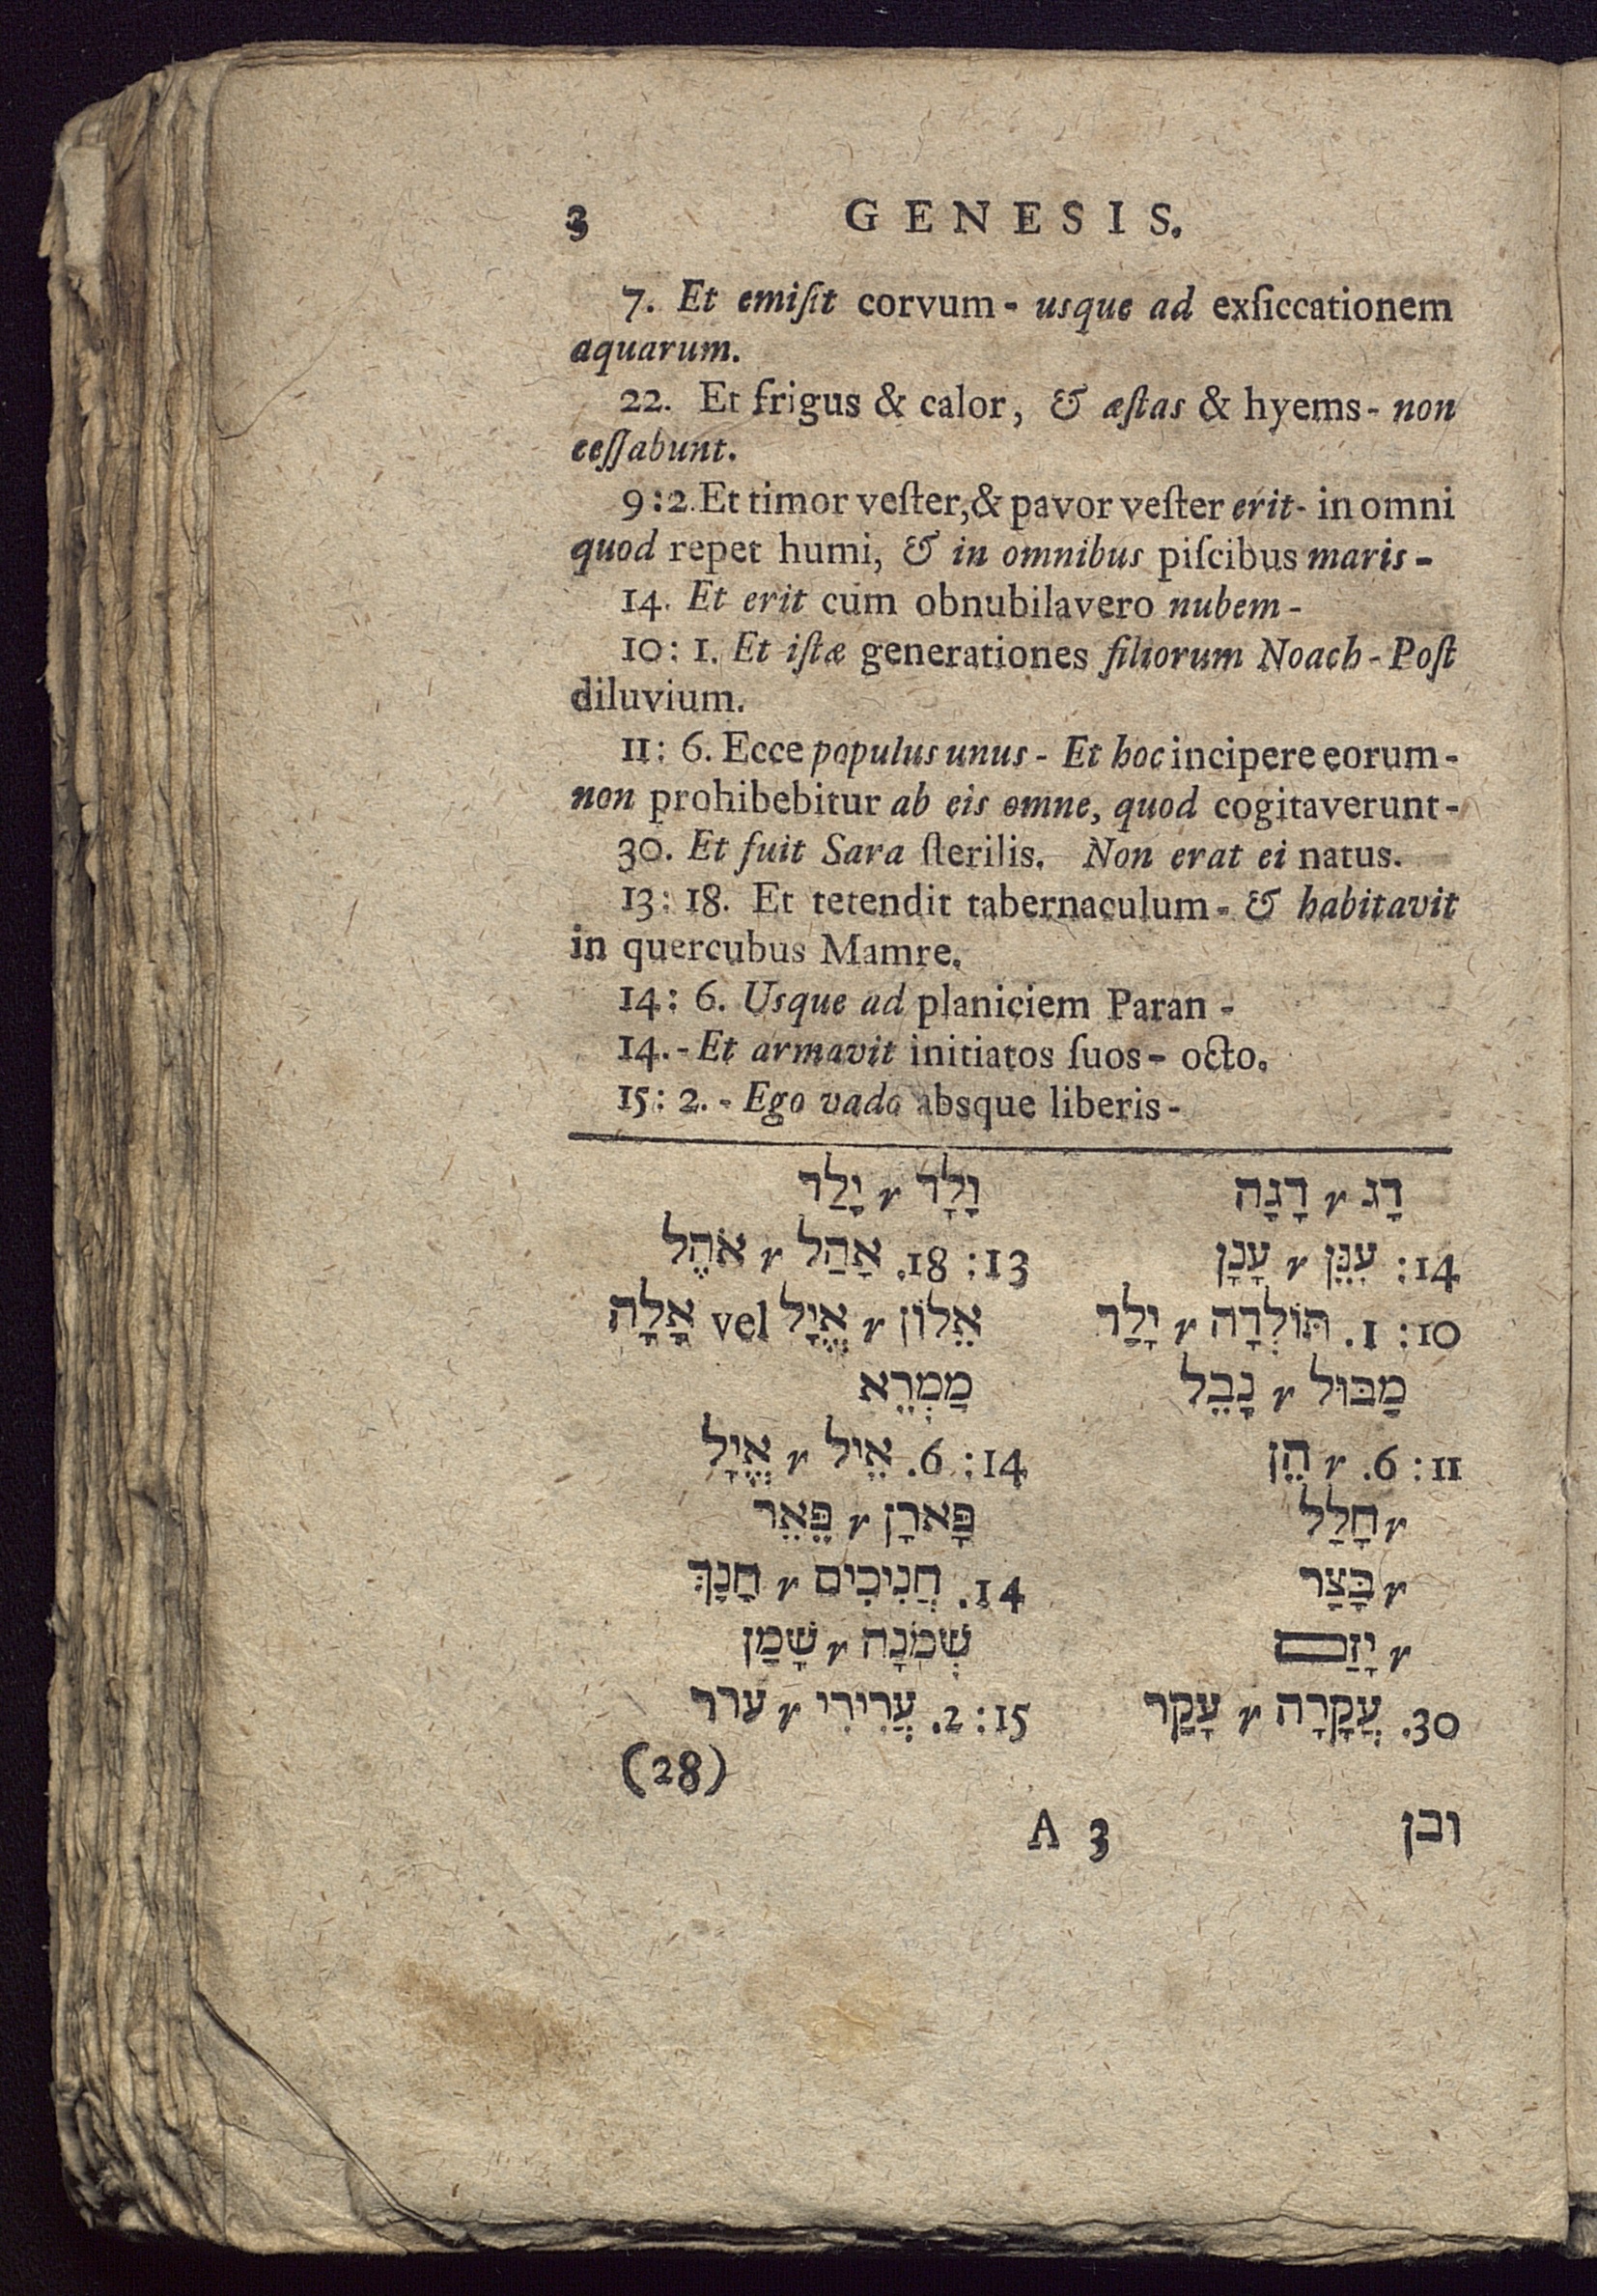 3 GENESIS.
7. Et emiſit corvum - usque ad exſiccationem
aquarum.
22. Et frigus & calor, & æſtas & hyems - non
ceſſabunt.
9:2. Et timor veſter, & pavor veſter erit - in omni
quod repet humi, & in omnibus piſcibus maris -
14. Et erit cum obnubilavero nubem -
10: 1. Et iſtæ generationes filiorum Noach - Poſt
diluvium.
11: 6. Ecce populus unus - Et hoc incipere eorum -
non prohibebitur ab eis omne, quod cogitaverunt -
30. Et fuit Sara ſterilis. Non erat ei natus.
13: 18. Et tetendit tabernaculum - & habitavit
in quercubus Mamre.
14: 6. Usque ad planiciem Paran -
14. - Et armavit initiatos ſuos - octo.
15: 2. - Ego vado absque liberis -
דָג r דָגָה
14: עִנֵּן r עָנָן
10: 1. תּוֹלְדָה r יָלַד
מַבּוּל r נָבֵל
11: 6. r הֵן
r חָלַל
r בָּצַר
r יָזַם
30. עֲקָרָה r עָקַר
וָלָד r יָלַד
13: 18. אָהַל r אֹהֶל
אֵלוֹן r אֱיָל vel אָלָה
מַמְרֵא
14: 6. אֵיל r אֱיָל
פָּארָן r פֵּאֵר
14. חֲנִיכִים r חָנַךְ
שְׁמֹנָה r שָׁמַן
15: 2. עֲרִירִי r ערר
(28)
A 3 ובן